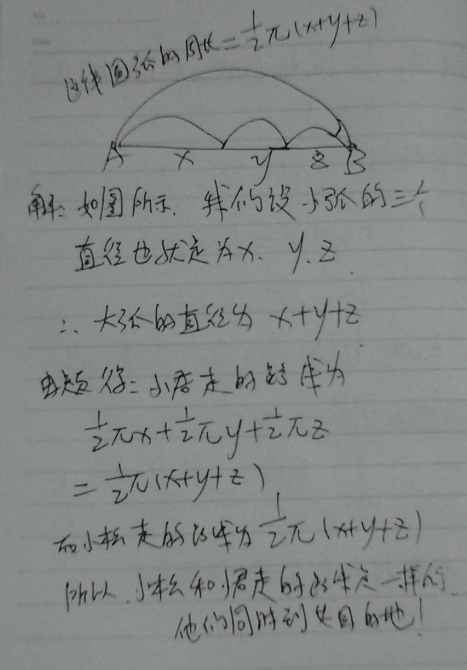 圆弧的周长=½π(x+y+z)
A x y z B
解: 如图所示. 我们设小弧的三个
直径也就是为x. y. z
∴ 大弧的直径为 x+y+z
由题得: 小君走的路线为
½πx+½πy+½πz
=½π(x+y+z)
而小松走的路线为½π(x+y+z)
所以. 小松和小君走的路线是一样的
他们同时到达目的地!